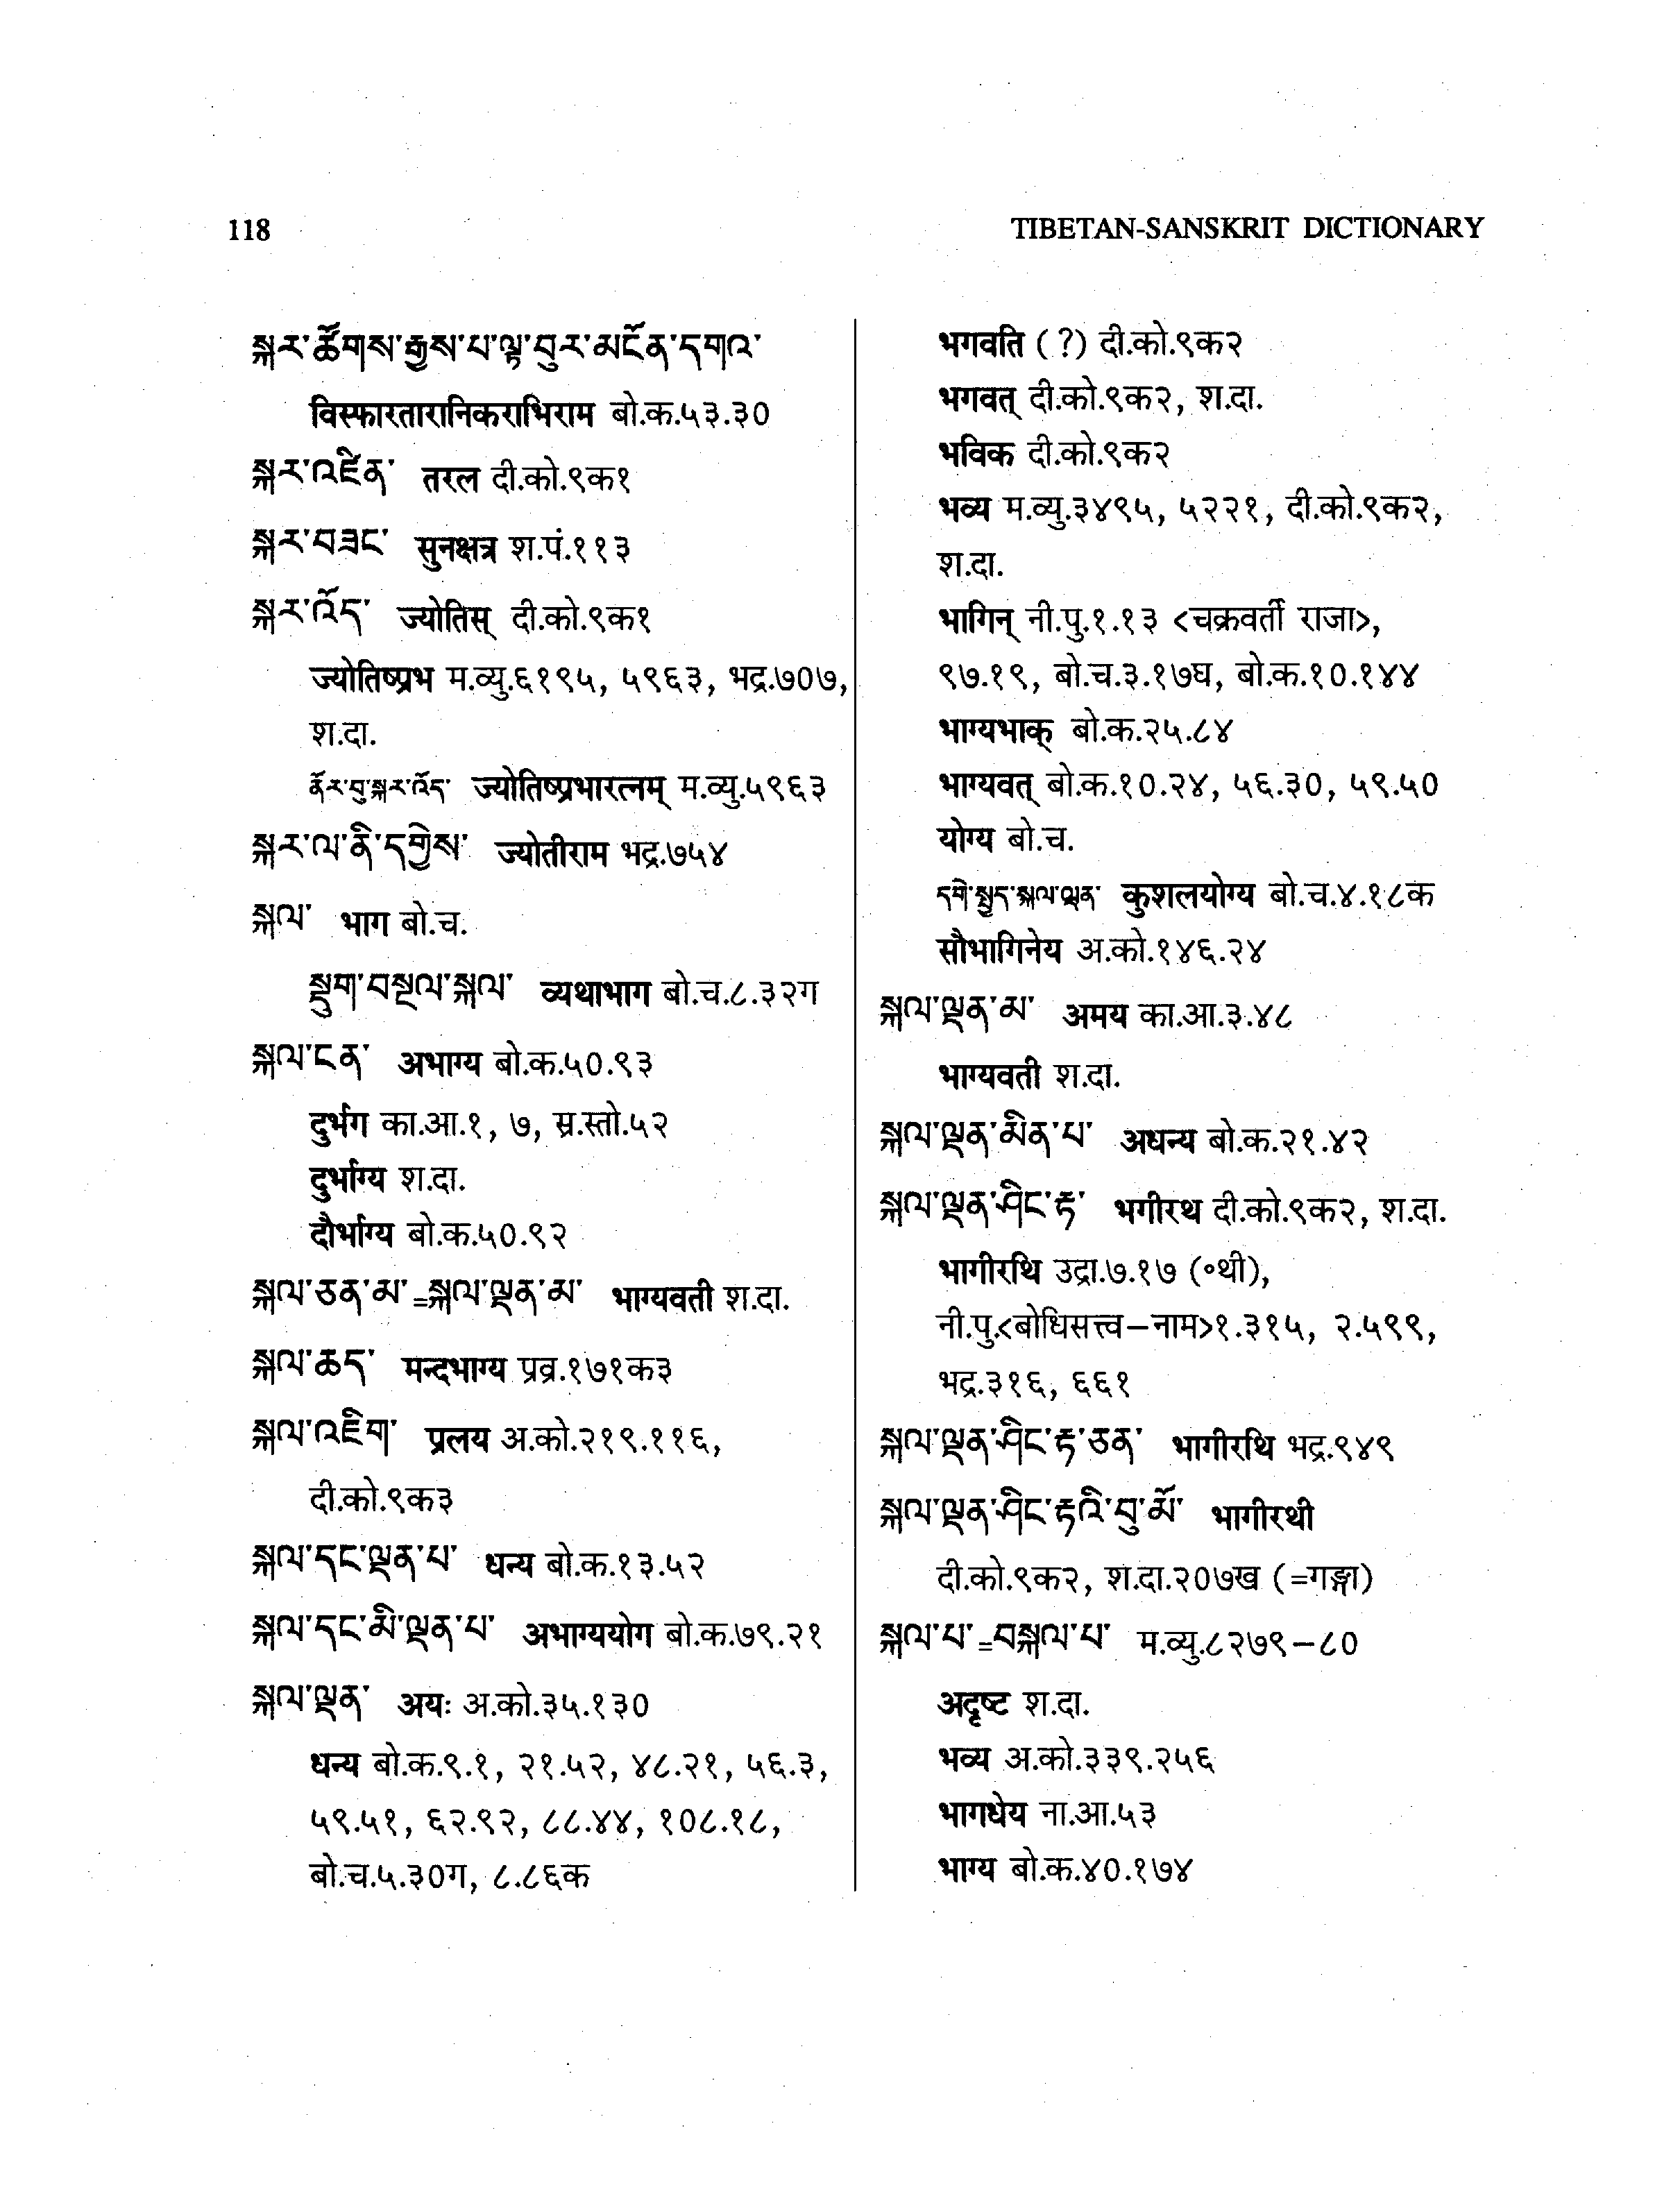 118
TIBETAN-SANSKRIT DICTIONARY
སྐར་ཚོགས་རྒྱས་པ་ལྟ་བུར་མངོན་དགའ་
विस्फारतारानिकराभिराम बो.क.५३.३०
སྐར་འཛིན་ तरल दी.को.९क१
སྐར་བཟང་ सुनक्षत्र श.पं.११३
སྐར་འོད་ ज्योतिस् दी.को.९क१
ज्योतिष्प्रभ म.व्यु.६१९५, ५९६३, भद्र.७०७,
श.दा.
ནོར་བུ་སྐར་འོད་ ज्योतिष्प्रभारत्नम् म.व्यु.५९६३
སྐར་ལ་ནི་དགྱེས་ ज्योतीराम भद्र.७५४
སྐལ་ भाग बो.च.
སྡུག་བསྔལ་སྐལ་ व्यथाभाग बो.च.८.३२ग
སྐལ་ངན་ अभाग्य बो.क.५०.९३
दुर्भग का.आ.१, ७, स्र.स्तो.५२
दुर्भाग्य श.दा.
दौर्भाग्य बो.क.५०.९२
སྐལ་ཅན་མ་=སྐལ་ལྡན་མ་ भाग्यवती श.दा.
སྐལ་ཆད་ मन्दभाग्य प्रव्र.१७१क३
སྐལ་འཇིག་ प्रलय अ.को.२१९.११६,
दी.को.९क३
སྐལ་དང་ལྡན་པ་ धन्य बो.क.१३.५२
སྐལ་དང་མི་ལྡན་པ་ अभाग्ययोग बो.क.७९.२१
སྐལ་ལྡན་ अयः अ.को.३५.१३०
धन्य बो.क.९.१, २१.५२, ४८.२१, ५६.३,
५९.५१, ६२.९२, ८८.४४, १०८.१८,
बो.च.५.३०ग, ८.८६क
भगवति (?) दी.को.९क२
भगवत् दी.को.९क२, श.दा.
भविक दी.को.९क२
भव्य म.व्यु.३४९५, ५२२१, दी.को.९क२,
श.दा.
भागिन् नी.पु.१.१३ <चक्रवर्ती राजा>,
९७.१९, बो.च.३.१७घ, बो.क.१०.१४४
भाग्यभाक् बो.क.२५.८४
भाग्यवत् बो.क.१०.२४, ५६.३०, ५९.५०
योग्य बो.च.
དགེ་སྤྱད་སྐལ་ལྡན་ कुशलयोग्य बो.च.४.१८क
सौभागिनेय अ.को.१४६.२४
སྐལ་ལྡན་མ་ अमय का.आ.३.४८
भाग्यवती श.दा.
སྐལ་ལྡན་མིན་པ་ अधन्य बो.क.२१.४२
སྐལ་ལྡན་ཤིང་རྟ་ भगीरथ दी.को.९क२, श.दा.
भागीरथि उद्रा.७.१७ (०थी),
नी.पु.<बोधिसत्त्व–नाम>१.३१५, २.५९९,
भद्र.३१६, ६६१
སྐལ་ལྡན་ཤིང་རྟ་ཅན་ भागीरथि भद्र.९४९
སྐལ་ལྡན་ཤིང་རྟའི་བུ་མོ་ भागीरथी
दी.को.९क२, श.दा.२०७ख (=गङ्गा)
སྐལ་པ་=བསྐལ་པ་ म.व्यु.८२७९–८०
अदृष्ट श.दा.
भव्य अ.को.३३९.२५६
भागधेय ना.आ.५३
भाग्य बो.क.४०.१७४